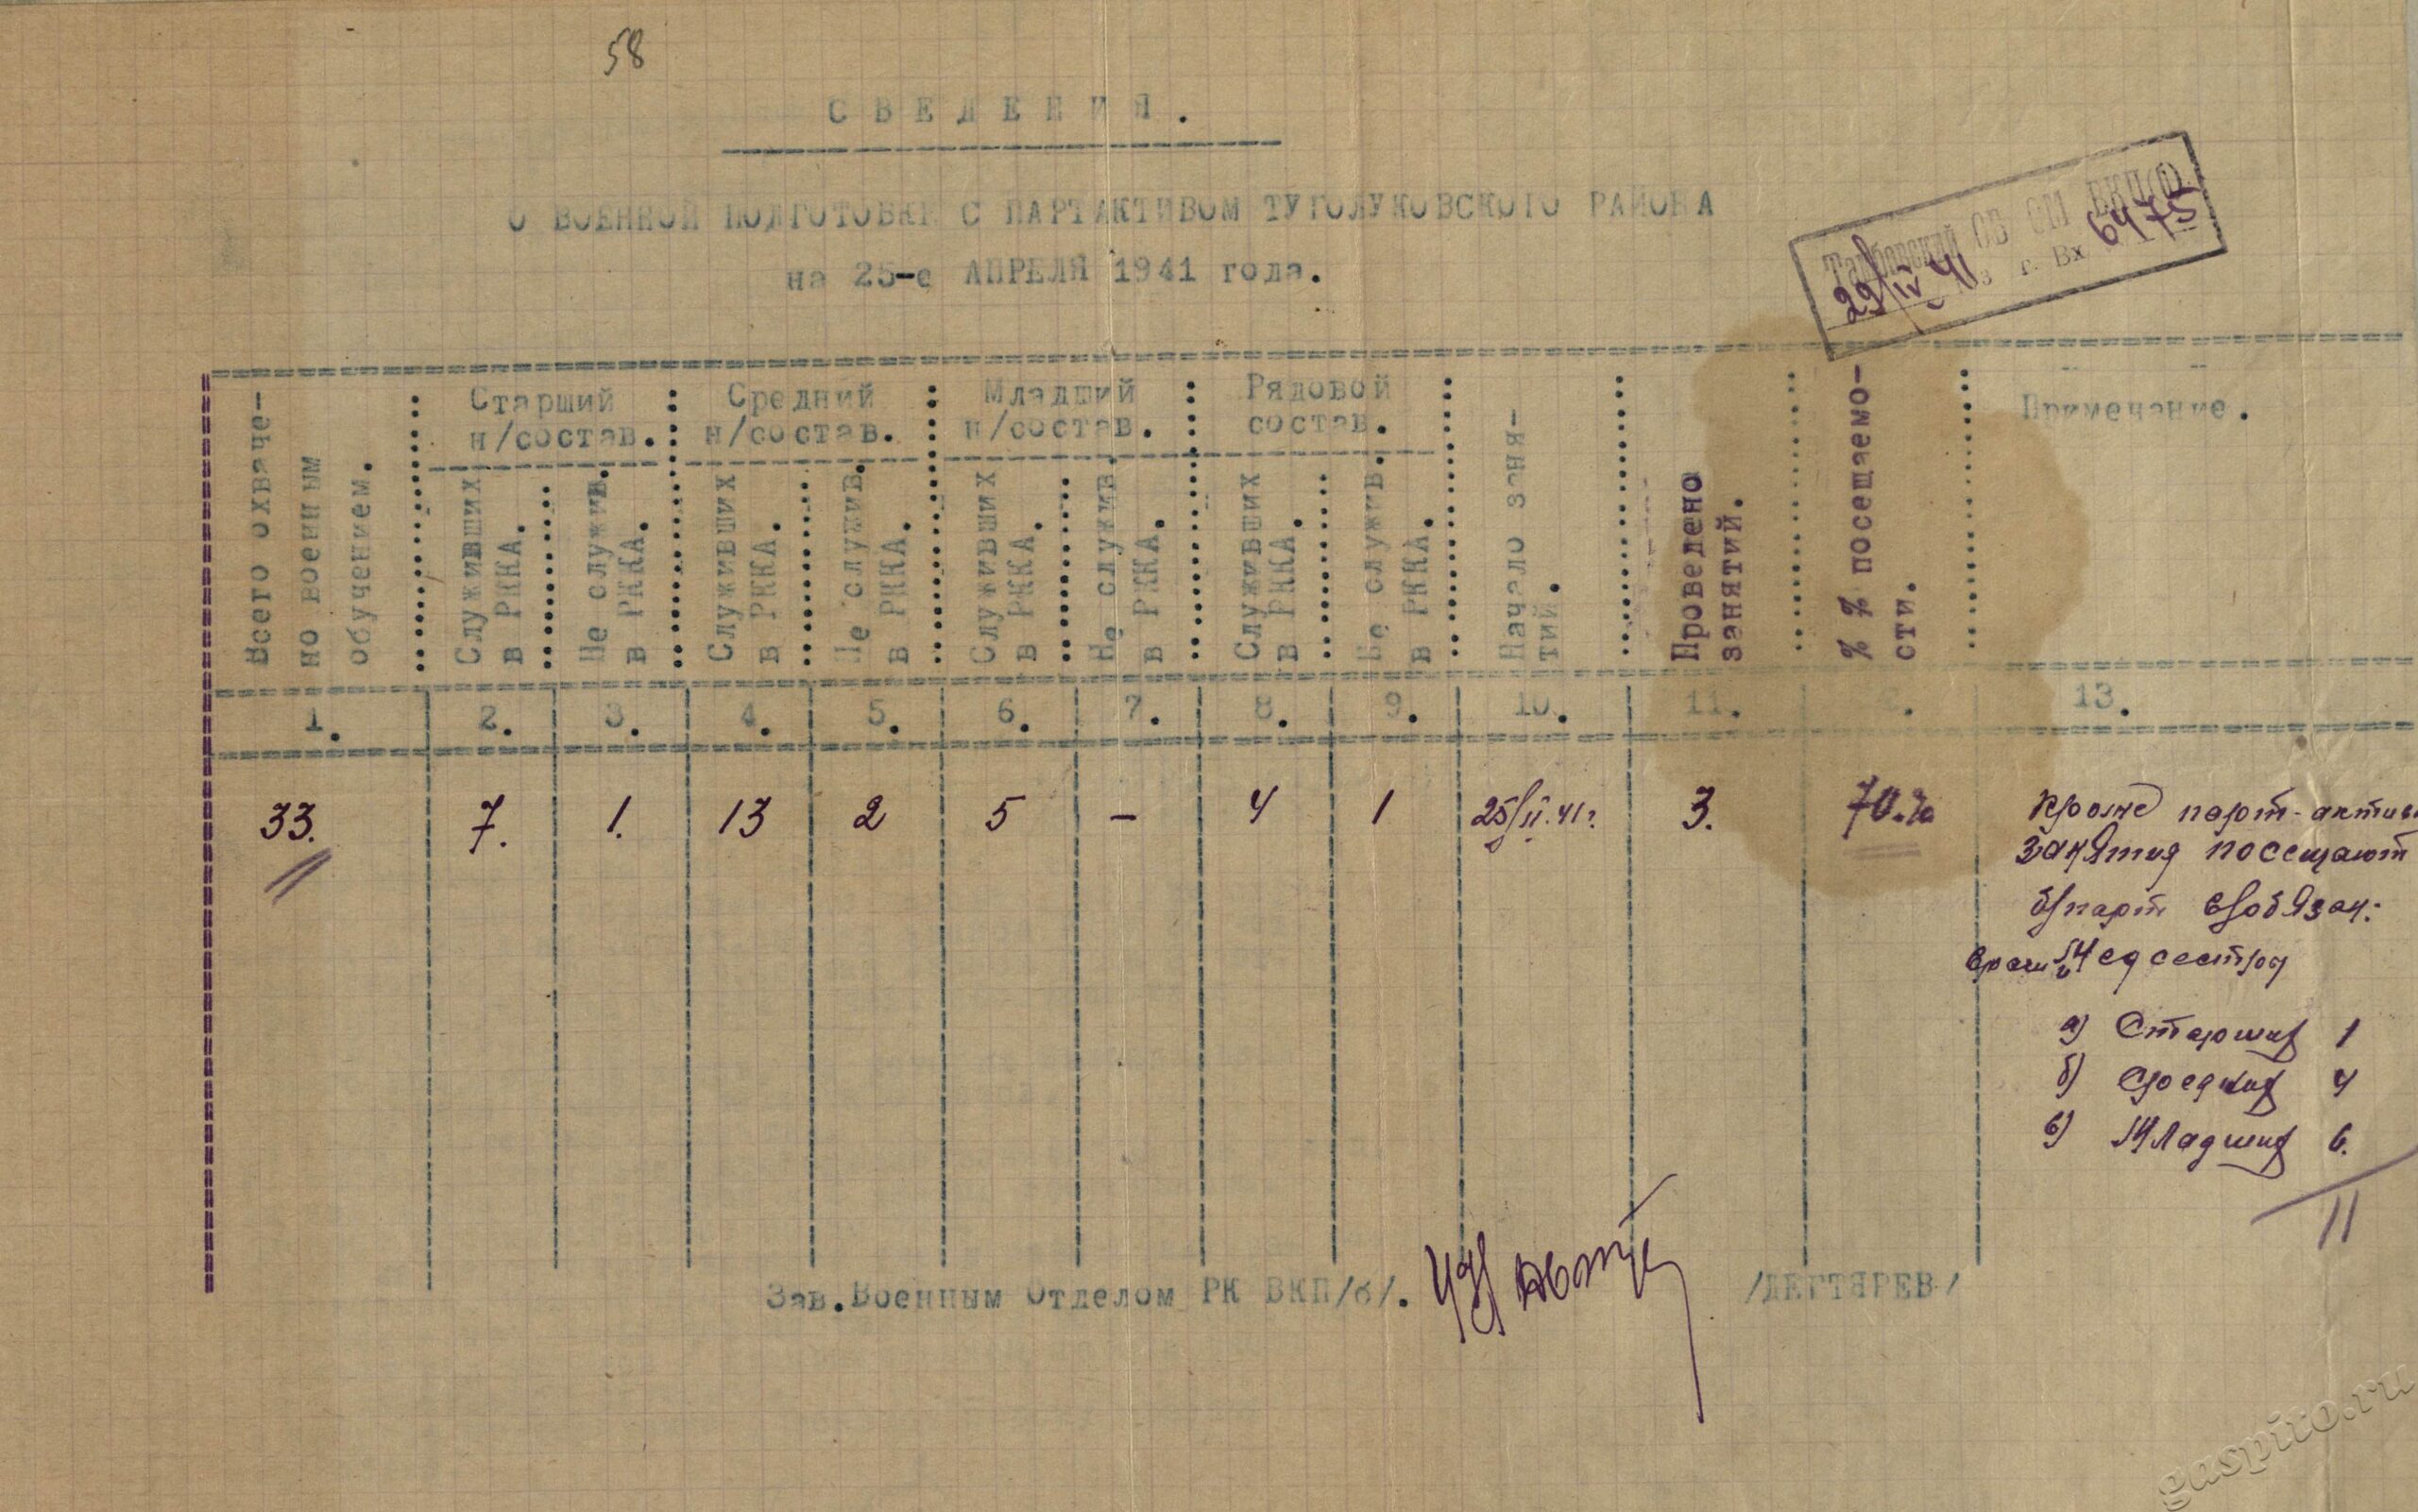 58
СВЕДЕНИЯ.
О ВОЕННОЙ ПОДГОТОВКЕ С ПАРТАКТИВОМ ТУГОЛУКОВСКОГО РАЙОНА
на 25-е АПРЕЛЯ 1941 года.
Тамбовский ОБКОМ ВКП(б)
29/IV 41 г. Вх 6475
Всего охваче-
но военным
обучением.
Старший
н/состав.
Служивших
в РККА.
Не служив.
в РККА.
Средний
н/состав.
Служивших
в РККА.
Не служив.
в РККА.
Младший
н/состав.
Служивших
в РККА.
Не служив.
в РККА.
Рядовой
состав.
Служивших
в РККА.
Не служив.
в РККА.
Начало заня-
тий.
Проведено
занятий.
% % посещаемо-
сти.
Примечание.
1. 2. 3. 4. 5. 6. 7. 8. 9. 10. 11. 13.
33. 7. 1. 13 2 5 – 4 1 25/II.41г. 3. 70.%
Кроме парт-актива
занятия посещают
б/парт в/обязан:
врачи и Медсестры
а) Старших 1
б) Средних 4
в) Младших 6.
11
Зав.Военным Отделом РК ВКП/б/. /ДЕГТЯРЕВ/
gaspito.ru